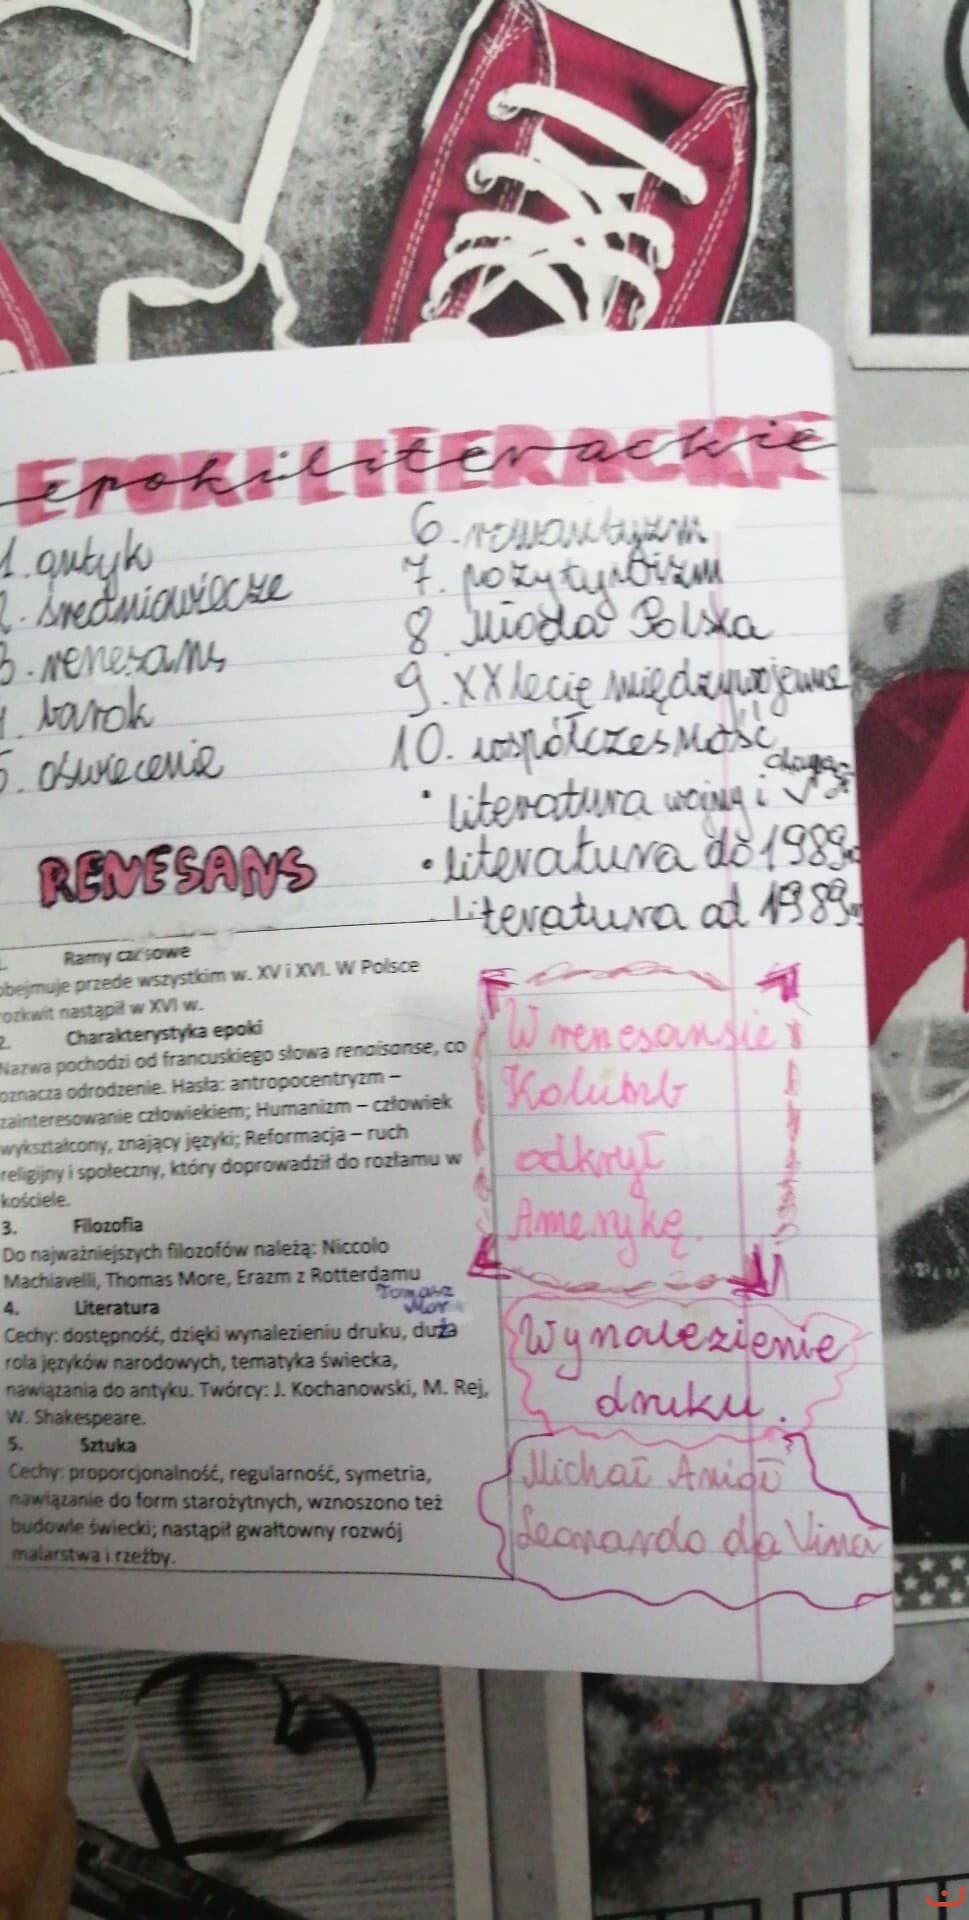 epoki literackie
1. antyk
2. średniowiecze
3. renesans
4. barok
5. oświecenie
6. romantyzm
7. pozytywizm
8. Młoda Polska
9. XXlecie międzywojenne
10. współczesność
• literatura wojny i
• literatura do 1989r.
literatura od 1989r.
RENESANS
Ramy czasowe
obejmuje przede wszystkim w. XV i XVI. W Polsce
rozkwit nastąpił w XVI w.
2. Charakterystyka epoki
Nazwa pochodzi od francuskiego słowa renaisanse, co
oznacza odrodzenie. Hasła: antropocentryzm –
zainteresowanie człowiekiem; Humanizm – człowiek
wykształcony, znający języki; Reformacja – ruch
religijny i społeczny, który doprowadził do rozłamu w
kościele.
3. Filozofia
Do najważniejszych filozofów należą: Niccolo
Machiavelli, Thomas More, Erazm z Rotterdamu
Tomasz
Mor
4. Literatura
Cechy: dostępność, dzięki wynalezieniu druku, duża
rola języków narodowych, tematyka świecka,
nawiązania do antyku. Twórcy: J. Kochanowski, M. Rej,
W. Shakespeare.
5. Sztuka
Cechy: proporcjonalność, regularność, symetria,
nawiązanie do form starożytnych, wznoszono też
budowle świecki; nastąpił gwałtowny rozwój
malarstwa i rzeźby.
W renesansie
Kolumb
odkrył
Amerykę.
Wynalezienie
druku.
Michał Anioł
Leonardo da Vinci